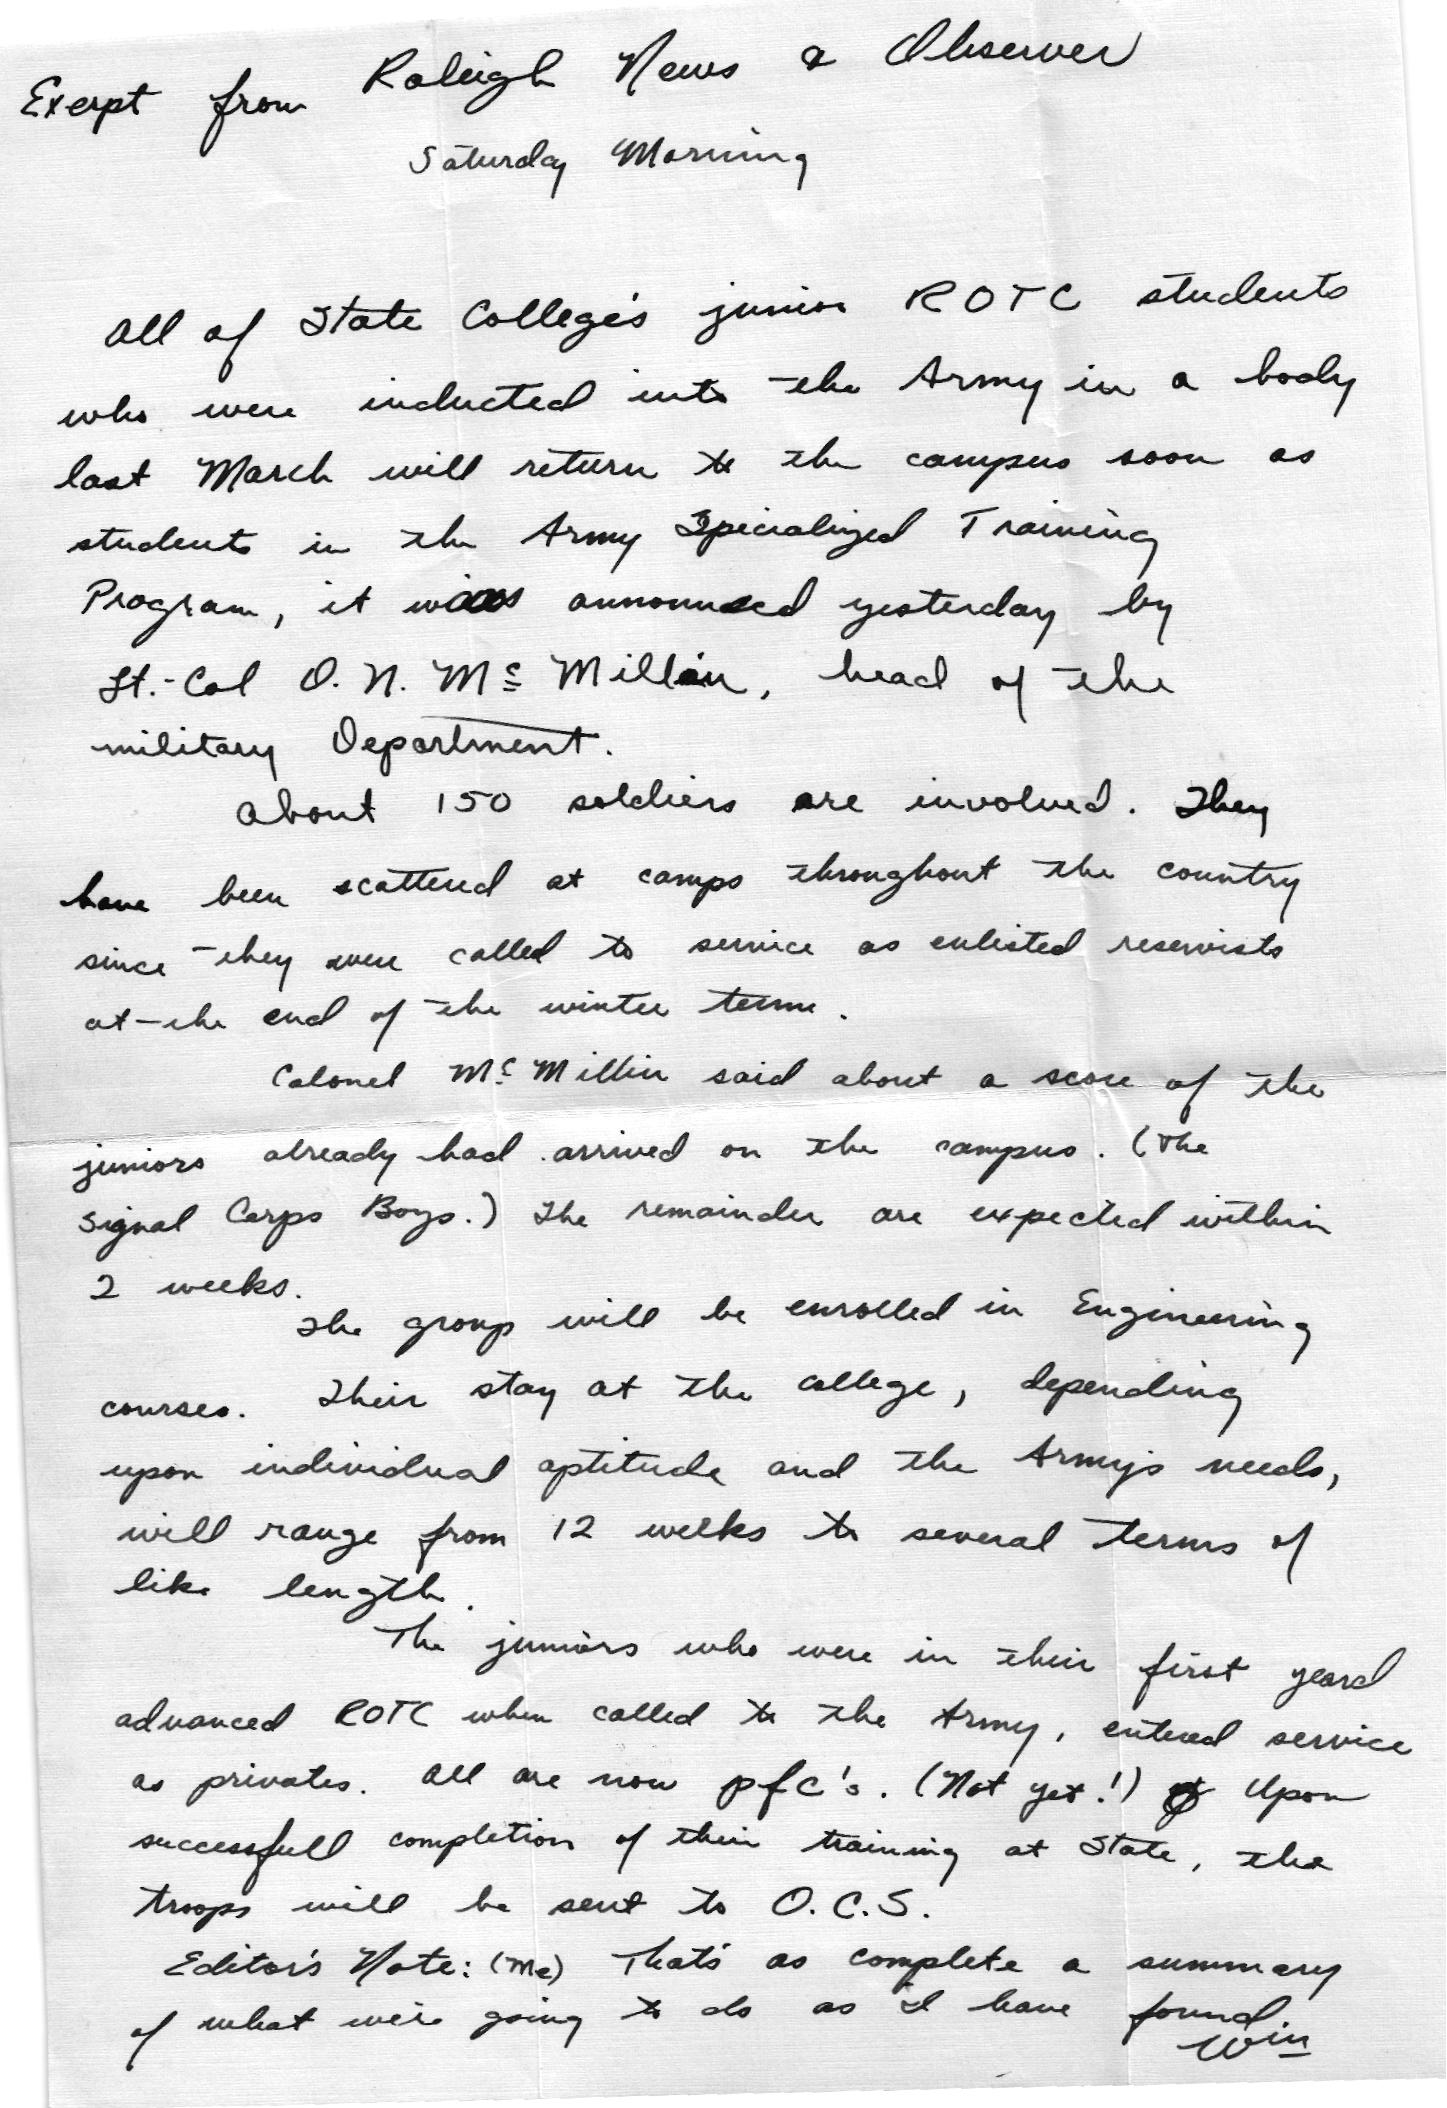 Exerpt from Raleigh News & Observer
Saturday Morning
All of State College's junior ROTC students
who were inducted into the Army in a body
last March will return to the campus soon as
students in the Army Specialized Training
Program, it was announced yesterday by
Lt.-Col O. N. McMillin, head of the
military Department.
About 150 soldiers are involved. They
have been scattered at camps throughout the country
since they were called to service as enlisted reservists
at the end of the winter term.
Colonel McMillin said about a score of the
juniors already had arrived on the campus. (The
Signal Corps Boys.) The remainder are expected within
2 weeks.
The group will be enrolled in Engineering
courses. Their stay at the college, depending
upon individual aptitude and the Army's needs,
will range from 12 weeks to several terms of
like length.
The juniors who were in their first year
advanced ROTC when called to the Army, entered service
as privates. All are now pfc's. (Not yet!) Upon
successfull completion of their training at State, the
troops will be sent to O.C.S.
Editor's Note: (Me) That's as complete a summary
of what we're going to do as I have found
Win